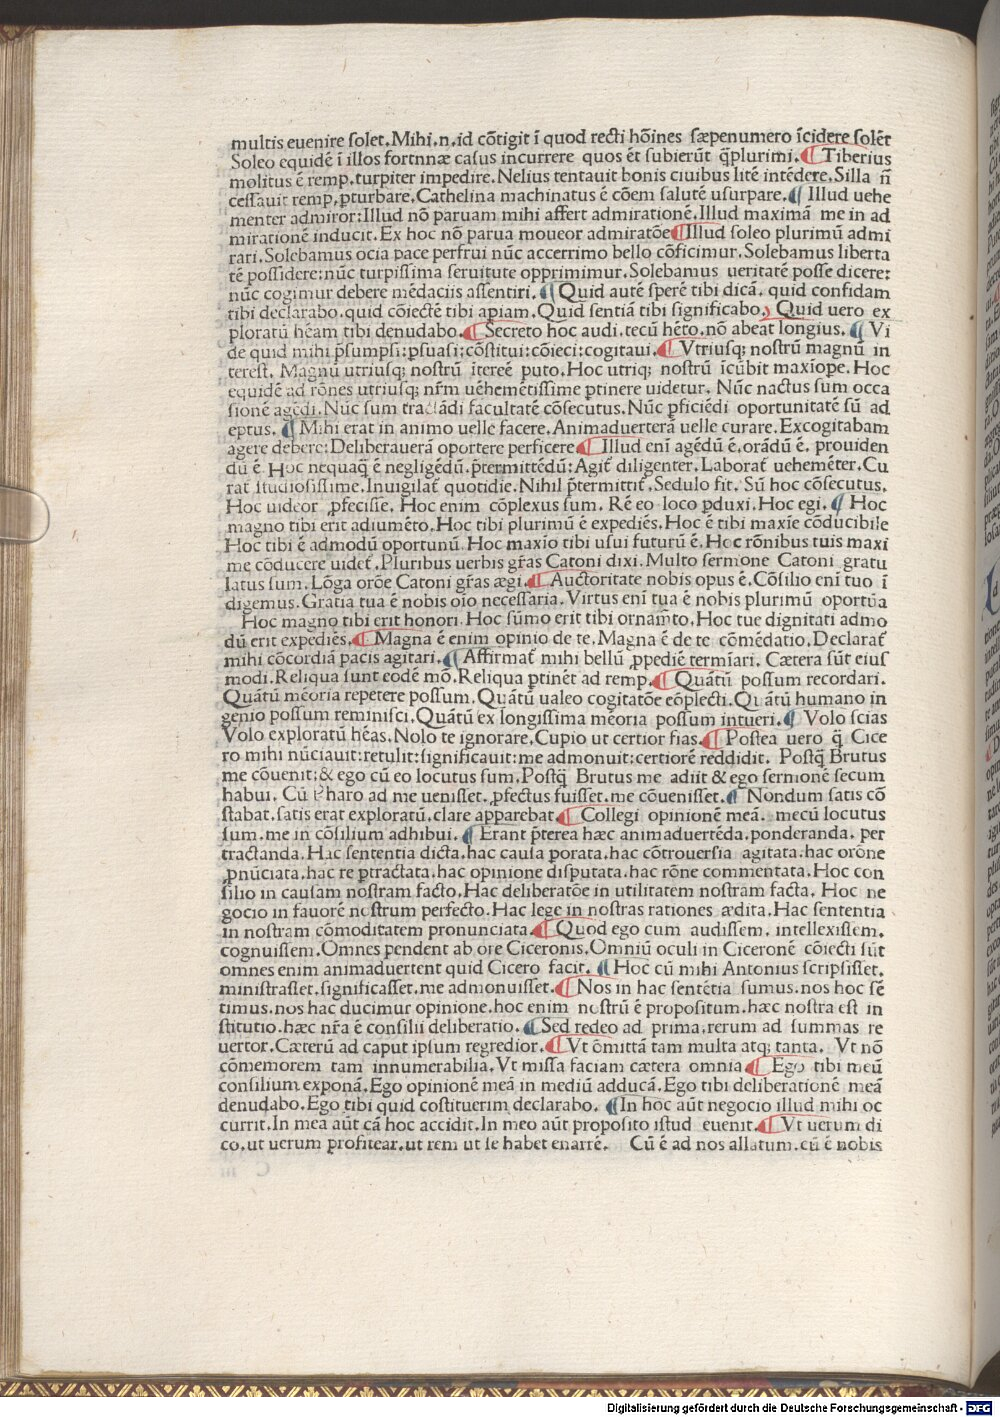 multis euenire ſolet. Mihi.n.id cõtigit ĩ quod recti hõines ſæpenumero ĩcidere ſolẽt
Soleo equidẽ ĩ illos fortnnæ caſus incurrere quos ẽt ſubierũt q̃plurimi. ¶ Tiberius
molitus ẽ remp. turpiter impedire. Nelius tentauit bonis ciuibus litẽ intẽdere. Silla ñ
ceſſauit remp. ꝓturbare. Cathelina machinatus ẽ cõem ſalutẽ uſurpare. ¶ Illud uehe
menter admiror: Illud nõ paruam mihi affert admirationẽ. Illud maximã me in ad
mirationẽ inducit. Ex hoc nõ parua moueor admiratõe ¶ Illud ſoleo plurimũ admi
rari. Solebamus ocia pace perfrui nũc accerrimo bello cõficimur. Solebamus liberta
tẽ poſſidere: nũc turpiſſima ſeruitute opprimimur. Solebamus ueritatẽ poſſe dicere:
nũc cogimur debere mẽdaciis aſſentiri. ¶ Quid autẽ ſperẽ tibi dicã. quid confidam
tibi declarabo. quid cõiectẽ tibi apiam. Quid ſentiã tibi ſignificabo. Quid uero ex
ploratũ hẽam tibi denudabo. ¶ Secreto hoc audi. tecũ hẽto. nõ abeat longius. ¶ Vi
de quid mihi p̃ſumpſi: ꝑſuaſi: cõſtitui: cõieci: cogitaui. ¶ Vtriuſq; noſtrũ magnũ in
tereſt. Magnũ utriuſq; noſtrũ ĩtereẽ puto. Hoc utriq; noſtrũ ĩcũbit maxĩope. Hoc
equidẽ ad rõnes utriuſq; nr̃m uẽhemẽtiſſime ꝑtinere uidetur. Nũc nactus ſum occa
ſionẽ agẽdi. Nũc ſum tractãdi facultatẽ cõſecutus. Nũc ꝑficiẽdi oportunitatẽ ſũ ad
eptus. ¶ Mihi erat in animo uelle facere. Animaduerterã uelle curare. Excogitabam
agere debere: Deliberauerã oportere perficere. ¶ Illud enĩ agẽdũ ẽ. orãdũ ẽ. prouiden
dũ ẽ. Hoc nequaq̃ ẽ negligẽdũ. p̃termittẽdũ: Agit̃ diligenter. Laborat̃ uehemẽter. Cu
rat̃ ſtudioſiſſime. Inuigilat̃ quotidie. Nihil p̃termittit̃. Sedulo fit. Sũ hoc cõſecutus.
Hoc uideor ꝓfeciſſe. Hoc enim cõplexus ſum. Rẽ eo loco ꝑduxi. Hoc egi. ¶ Hoc
magno tibi erit adiumẽto. Hoc tibi plurimũ ẽ expediẽs. Hoc ẽ tibi maxĩe cõducibile
Hoc tibi ẽ admodũ oportunũ. Hoc maxĩo tibi uſui futurũ ẽ. Hoc rõnibus tuis maxi
me cõducere uidet̃. Pluribus uerbis gr̃as Catoni dixi. Multo ſermone Catoni gratu
latus ſum. Lõga orõe Catoni gr̃as ægi. ¶ Auctoritate nobis opus ẽ. Cõſilio enĩ tuo ĩ
digemus. Gratia tua ẽ nobis oĩo neceſſaria. Virtus enĩ tua ẽ nobis plurimũ oportũa
Hoc magno tibi erit honori. Hoc ſũmo erit tibi ornam̃to. Hoc tue dignitati admo
dũ erit expediẽs. ¶ Magna ẽ enim opinio de te. Magna ẽ de te cõmẽdatio. Declarat̃
mihi cõcordiã pacis agitari. ¶ Affirmat̃ mihi bellũ ꝓpediẽ termĩari. Cætera ſũt eius
modi. Reliqua ſunt eodẽ mõ. Reliqua ꝑtinẽt ad remp. ¶ Quãtũ poſſum recordari.
Quãtũ mẽoria repetere poſſum. Quãtũ ualeo cogitatõe cõplecti. Quãtũ humano in
genio poſſum reminiſci. Quãtũ ex longiſſima mẽoria poſſum intueri. ¶ Volo ſcias
Volo exploratũ hẽas. Nolo te ignorare. Cupio ut certior fias. ¶ Poſtea uero q̃ Cice
ro mihi nũciauit: retulit: ſignificauit: me admonuit: certiorẽ reddidit. Poſtq̃ Brutus
me cõuenit: & ego cũ eo locutus ſum. Poſtq̃ Brutus me adiit & ego ſermonẽ ſecum
habui. Cũ Pharo ad me ueniſſet. ꝓfectus fuiſſet. me cõueniſſet. ¶ Nondum ſatis cõ
ſtabat. ſatis erat exploratũ. clare apparebat. ¶ Collegi opinionẽ meã. mecũ locutus
ſum. me in cõſilium adhibui. ¶ Erant p̃terea hæc animaduertẽda. ponderanda. per
tractanda. Hac ſententia dicta. hac cauſa ꝑorata. hac cõtrouerſia agitata. hac orõne
ꝓnũciata. hac re ꝑtractata. hac opinione diſputata. hac rõne commentata. Hoc con
ſilio in cauſam noſtram facto. Hac deliberatõe in utilitatem noſtram facta. Hoc ne
gocio in fauorẽ noſtrum perfecto. Hac lege in noſtras rationes ædita. Hac ſententia
in noſtram cõmoditatem pronunciata. ¶ Quod ego cum audiſſem. intellexiſſem.
cognuiſſem. Omnes pendent ab ore Ciceronis. Omniũ oculi in Ciceronẽ cõiecti ſũt
omnes enim animaduertent quid Cicero facit. ¶ Hoc cũ mihi Antonius ſcripſiſſet.
miniſtraſſet. ſignificaſſet. me admonuiſſet. ¶ Nos in hac ſentẽtia ſumus. nos hoc ſẽ
timus. nos hac ducimur opinione. hoc enim noſtrũ ẽ propoſitum. hæc noſtra eſt in
ſtitutio. hæc nr̃a ẽ conſilii deliberatio. ¶ Sed redeo ad prima. rerum ad ſummas re
uertor. Cæterũ ad caput ipſum regredior. ¶ Vt õmittã tam multa atq; tanta. Vt nõ
cõmemorem tam innumerabilia. Vt miſſa faciam cætera omnia ¶ Ego tibi meũ
conſilium exponã. Ego opinionẽ meã in mediũ adducã. Ego tibi deliberationẽ meã
denudabo. Ego tibi quid coſtituerim declarabo. ¶ In hoc aũt negocio illud mihi oc
currit. In mea aũt cã hoc accidit. In meo aũt propoſito iſtud euenit. ¶ Vt uerum di
co. ut uerum profitear. ut rem ut ſe habet enarrẽ. Cũ ẽ ad nos allatum. cũ ẽ nobis
Digitalisierung gefördert durch die Deutsche Forschungsgemeinschaft - DFG